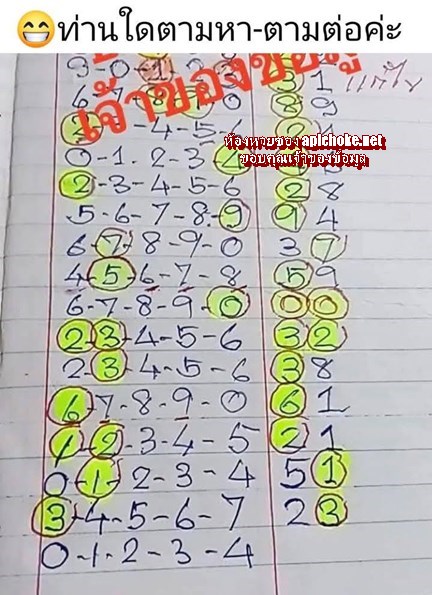 😁ท่านใดตามหา-ตามต่อค่ะ
เจ้าของข้อมูล
แก้ไข
ห้องหวยของ aplchoke.net
ขอบคุณเจ้าของข้อมูล
2-3-4-5-6 28
5-6-7-8-9 94
6-7-8-9-0 37
4-5-6-7-8 59
6-7-8-9-0 00
2-3-4-5-6 32
2-3-4-5-6 38
6-7-8-9-0 61
1-2-3-4-5 21
0-1-2-3-4 51
3-4-5-6-7 23
0-1-2-3-4